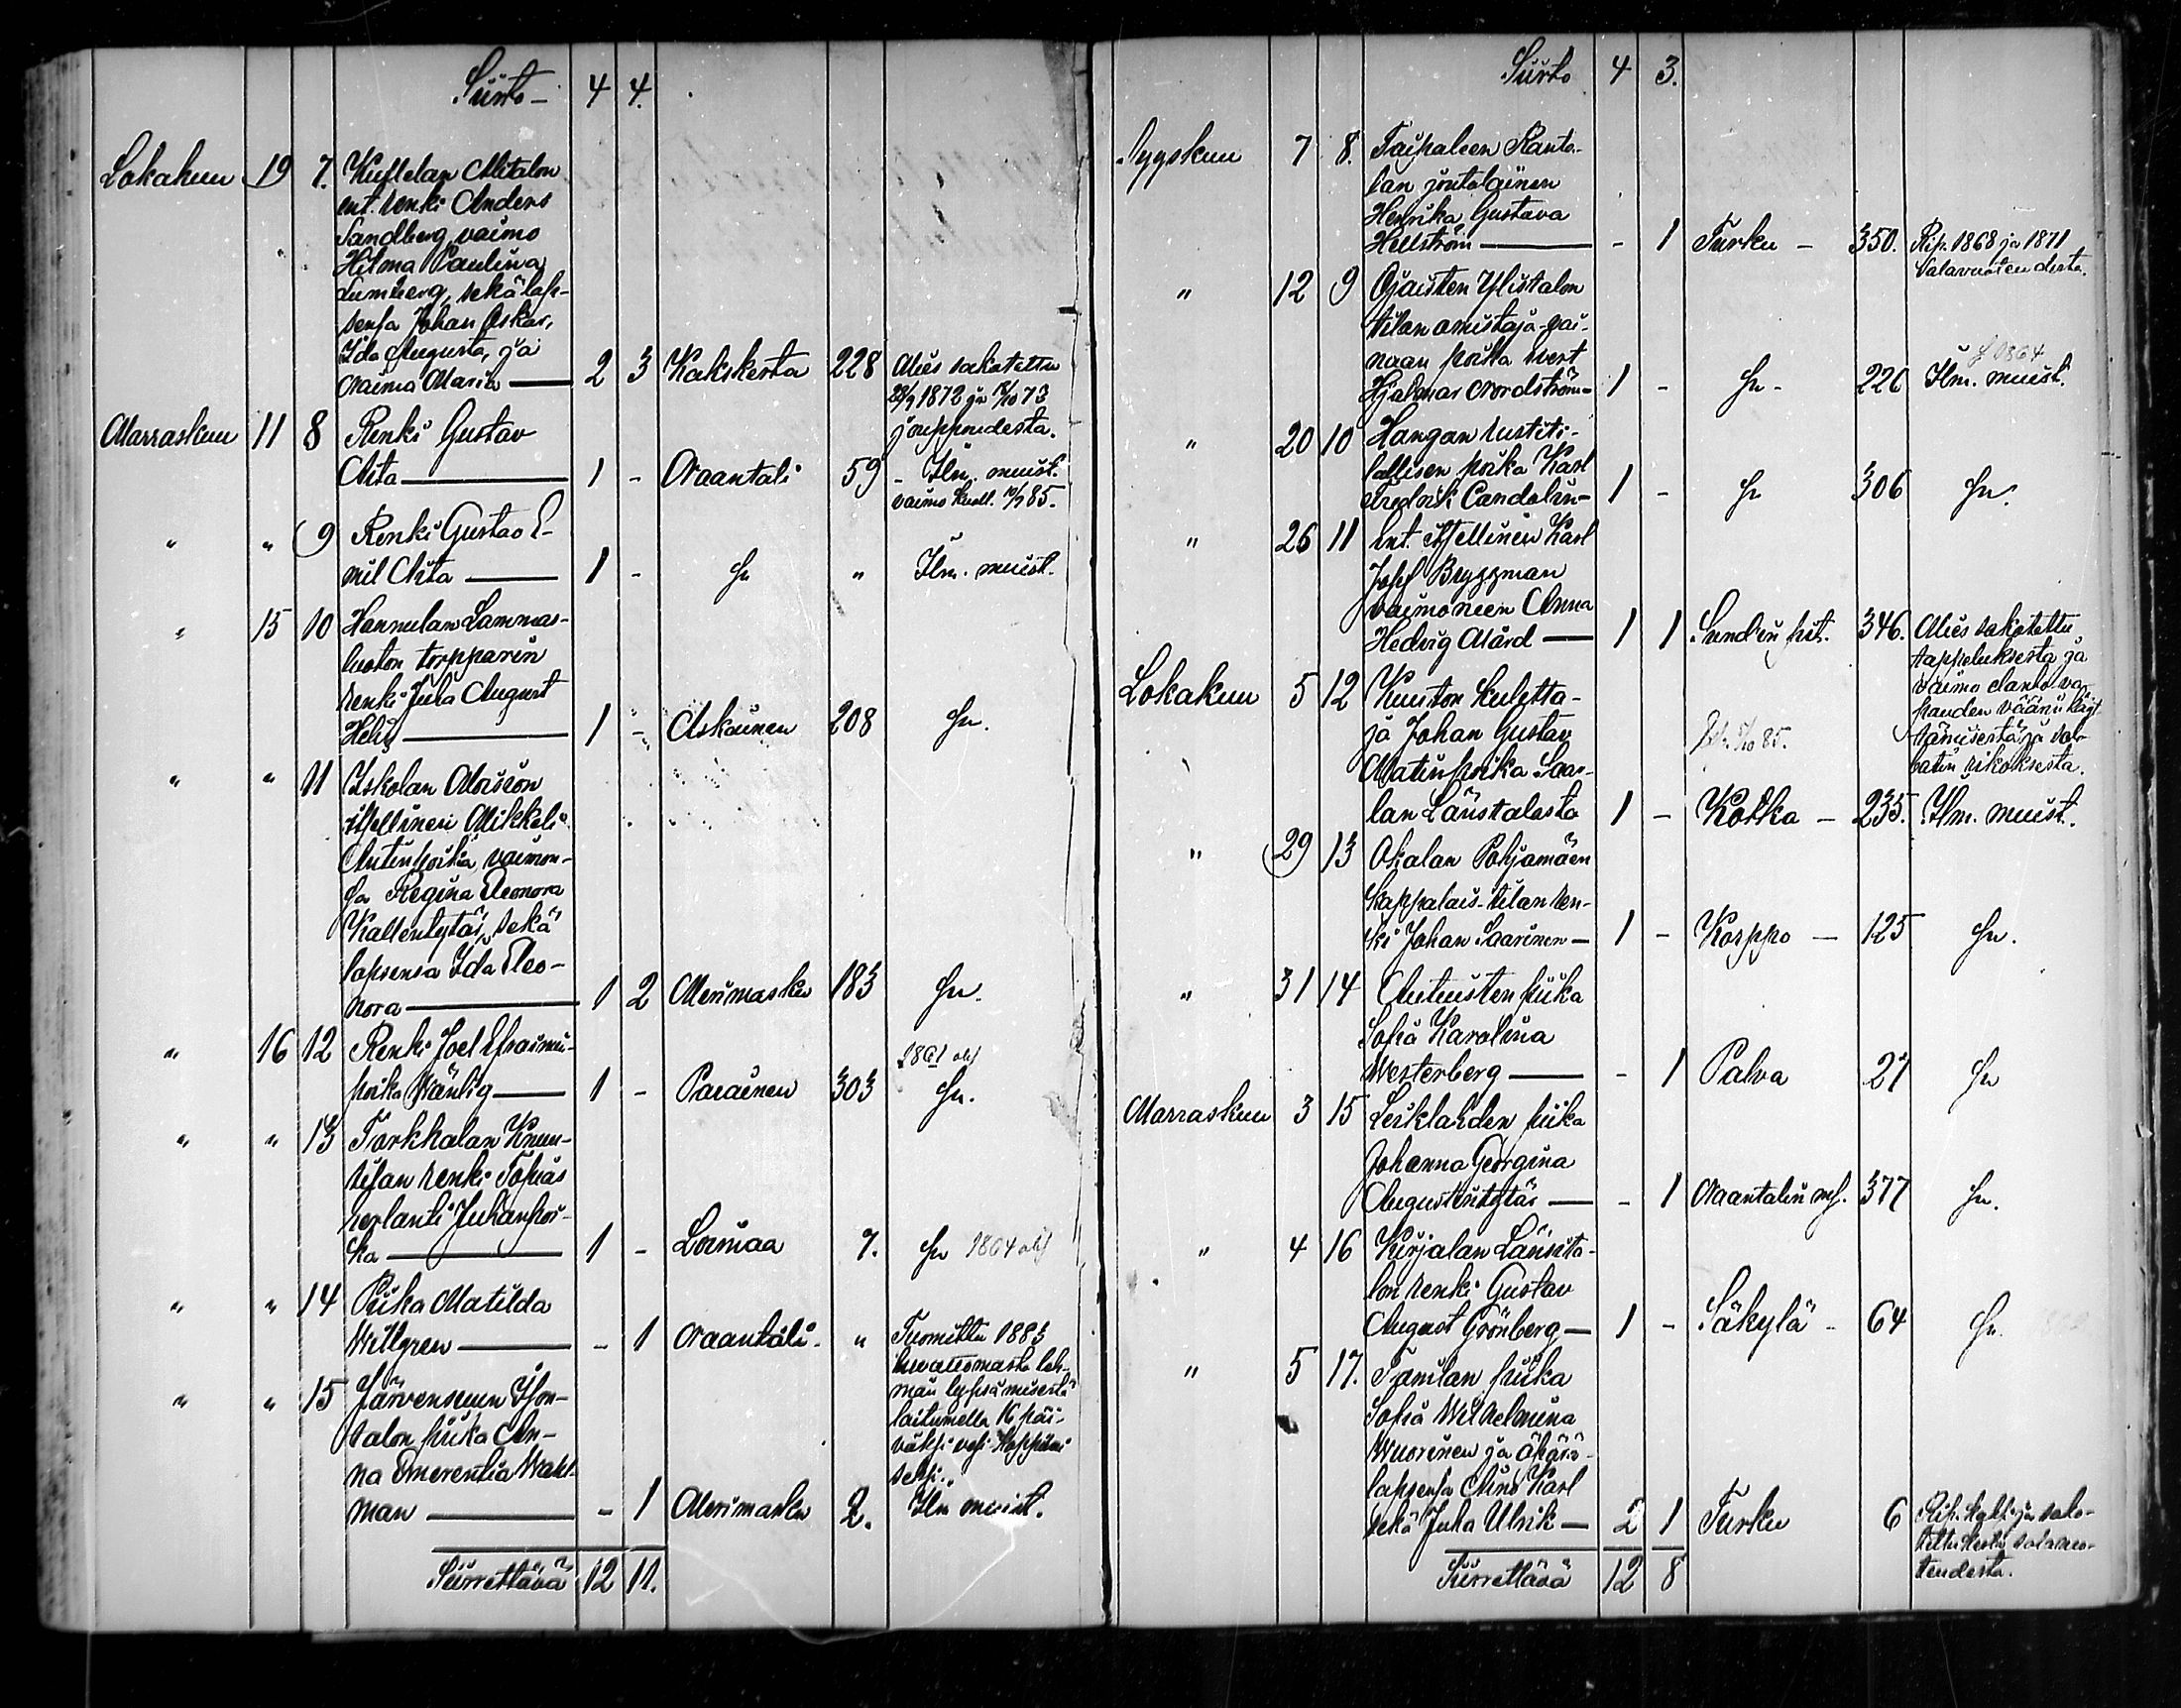 Siirto – 4 4.
Lokakuun 19 7. Kullelan Alitalon
ent. renki Anders
Sandberg, vaimo
Hilma Paulina
sekä lap-
sensa Johan Oskar,
Ida Augusta, ja
Naima Maria — 2 3 Kakskerta 228 Mies sakotettu
1872 ja 73
juoppoudesta.
Marraskuun 11 8 Renki Gustav
Aita — 1 - Naantali 59 - Ilm. muist.
vaimo kuoll. 85.
" " 9 Renki Gustav E-
mil Aita — 1 - Sn " Ilm. muist.
" 15 10 Hannulan Lammas-
luoton torpparin
renki Juha August
Helin — 1 - Askainen 208 Sn.
" " 11 Iskolan Moision
itsellinen Mikkeli
Antinpoika, vaimon-
sa Regina Eleonora
Kallentytär, sekä
lapsensa Ida Eleo-
nora — 1 2 Merimasku 183 Sn.
" 16 12 Renki Joel Efraimin-
poika — 1 - Parainen 303 Sn.
" " 13 Tarkkalan
renki Tobias
Juhanpoi-
ka — 1 - Loimaa 7. Sn 1864
" " 14 Piika Matilda
Willgren — - 1 Naantali - " Tuomittu 1883
luvattomasta leh-
män lypsämisestä
laitumella 16 päi-
väksi vesi-
seksi.
" " 15 Järvensuun
talon piika An-
na Emerentia Wahl-
man — - 1 Merimasku 2. Ilm muist.
Siirrettävä 12 11.
Siirto 4 3.
Syyskuun 7 8. Taipaleen Ranta-
lan joutolainen
Henrika Gustava
Hellström — - 1 Turku - 350. Rip. 1868 ja 1871
salavuoteudesta.
" 12 9 Ojaisten Ylistalon
tilan omistaja-vai-
naan poika
Hjalmar Nordström- 1 - Sn - 226 Ilm. muist.
" 20 10 Hangan rustiti-
lallisen poika Karl
Fredrik Candolin- 1 - Sn 306 Sn.
" 26 11 Ent. itsellinen Karl
Josef Bryggman
vaimoneen Anna
Hedvig Mård — 1 1 Sundin pit. 346. Mies sakotettu
tappeluksesta ja
vaimo
vapauden väärin käyt-
tämisestä ja sab-
batin rikoksesta.
Lokakuun 5 12 Kuuston kuletta-
ja Johan Gustav
Matinpoika Saa-
lan Länstalosta 1 - Kotka - 235. Ilm. muist.
" 29 13 Okalan Pohjamäen
kappalais-tilan ren-
ki Johan Saarinen — 1 - Korppo - 125 Sn.
" 31 14 Autuisten piika
Sofia Karolina
Westerberg — - 1 Palva 21 Sn
Marraskuun 3 15 Lesklahden piika
Johanna Georgina
Augustintytär — - 1 Naantalin ms. 377 Sn.
" 4 16 Kirjalan Länsita-
lon renki Gustav
August Grönberg — 1 - Säkylä - 64 Sn.
" 5 17. Tamilan piika
Sofia Wilhelmina
Wuorinen ja äpärä-
lapsensa Aino Karl
sekä Juha Ulrik — 2 1 Turku 6 Rip. ja sako-
salavuo-
teudesta.
Siirrettävä 12 8